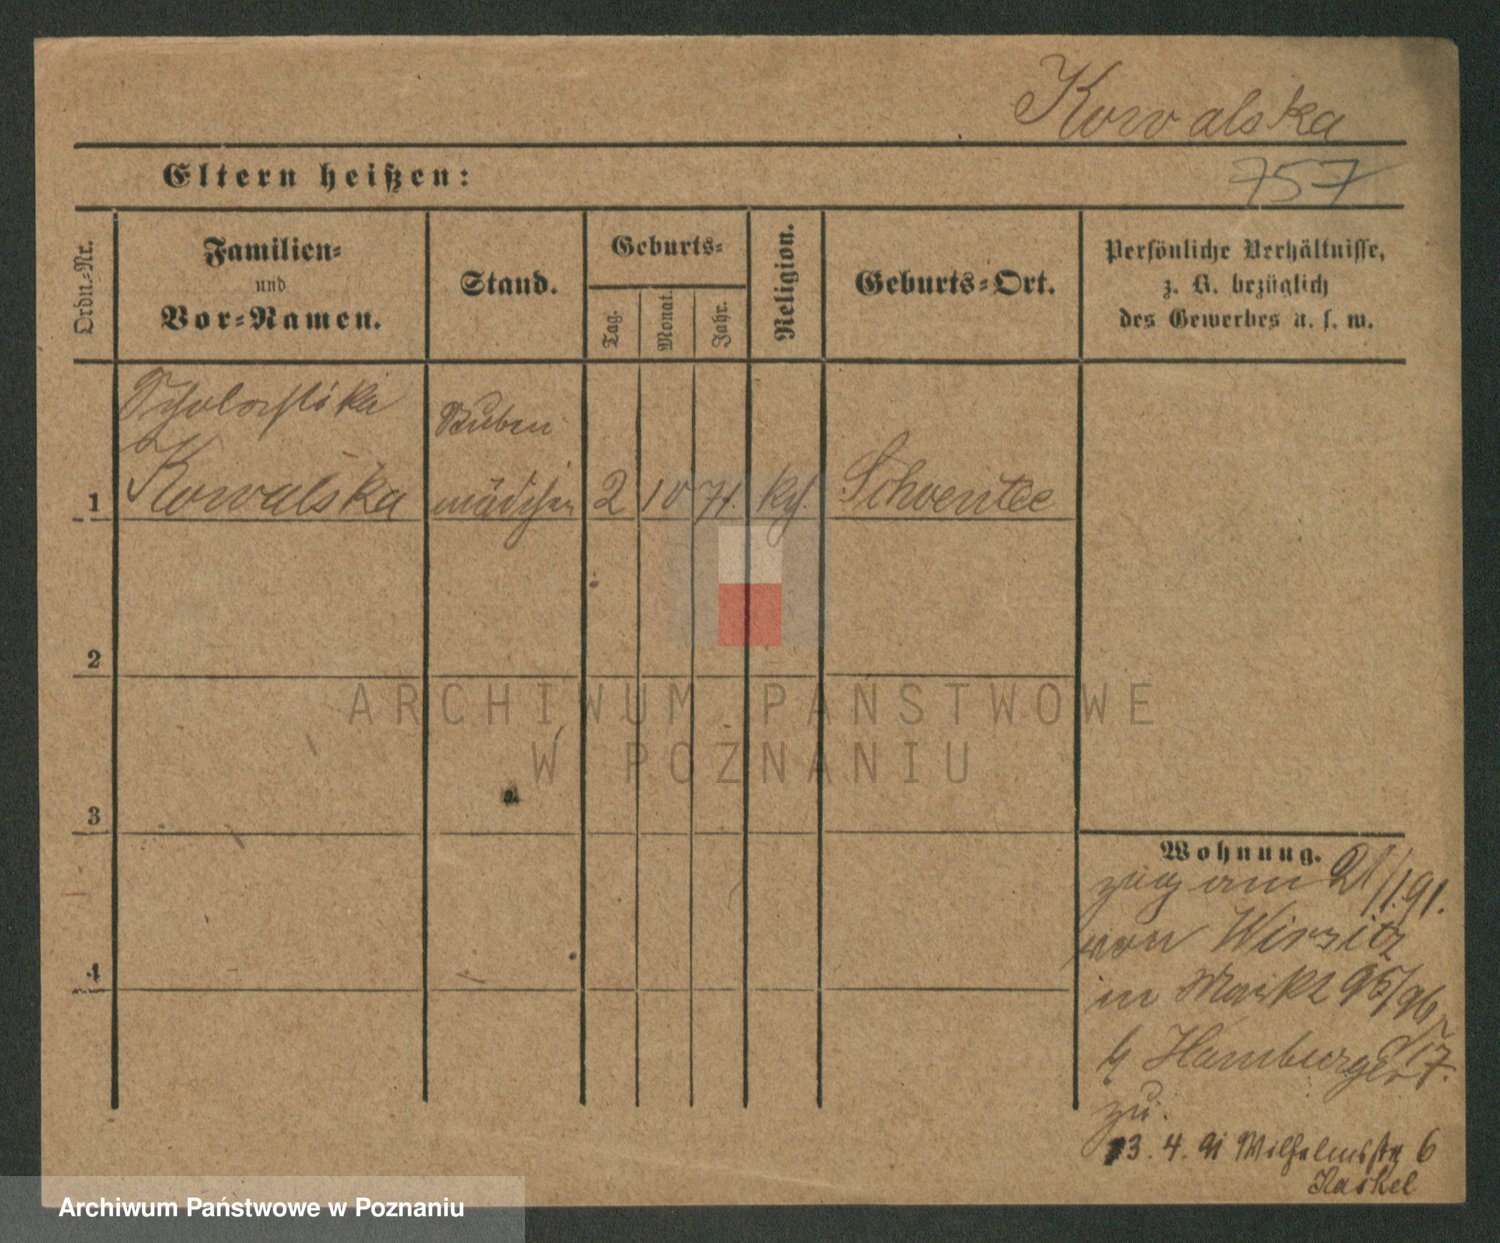 Kowalska
757
Eltern heißen:
Ordn.-Nr.
Familien-
und
Vor-Namen.
Stand.
Geburts-
Tag.
Monat.
Jahr.
Religion.
Geburts-Ort.
Persönliche Verhältnisse,
z. B. bezüglich
des Gewerbes u. s. w.
Scholastika
Stuben
1 Kowalska mädchen 2 10 71. kth. Schwentee
2
3
4
Wohnung.
zug am 21/1.91.
von Wirsitz
in Markt 95/96
b Hamburger
zu.
13. 4. 91 Wilhelmstr 6
Haskel
ARCHIWUM PAŃSTWOWE
W POZNANIU
Archiwum Państwowe w Poznaniu